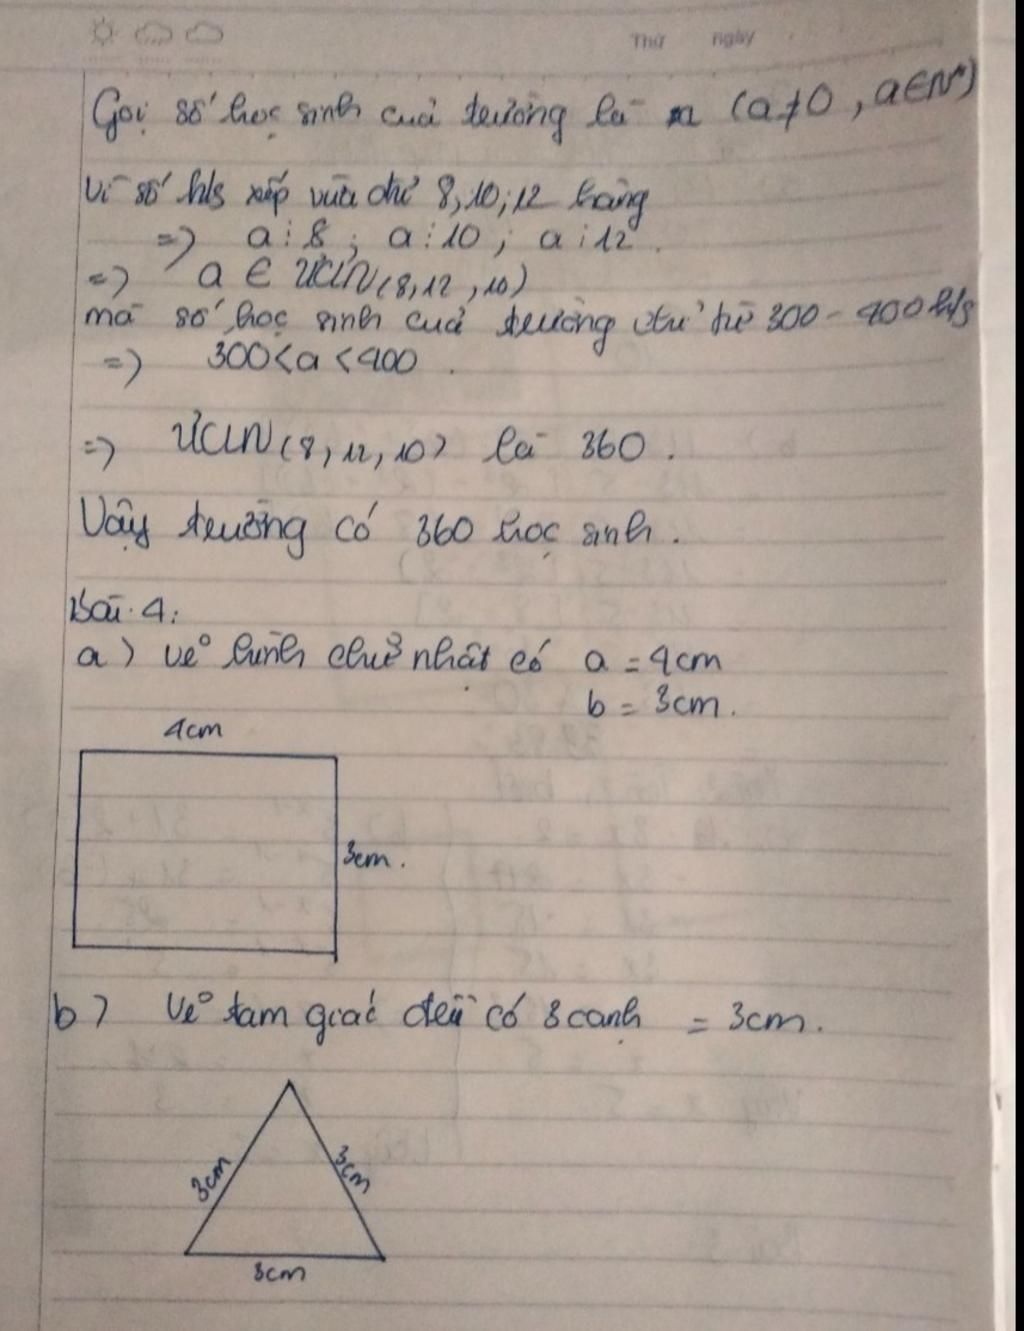 Thứ ngày
Gọi số học sinh của trường là a (a≠0, a∈N*)
Vì số h/s xếp vừa đủ 8, 10; 12 hàng
=> a⋮8; a⋮10; a⋮12.
=> a ∈ ƯCLN(8,12,10)
mà số học sinh của trường từ 300 - 400 h/s
=> 300<a<400.
=> ƯCLN(8,12,10) là 360.
Vậy trường có 360 học sinh.
Bài 4:
a) vẽ hình chữ nhật có a = 4cm
b = 3cm.
4cm
3cm.
b) Vẽ tam giác đều có 3 cạnh = 3cm.
3cm
3cm
3cm